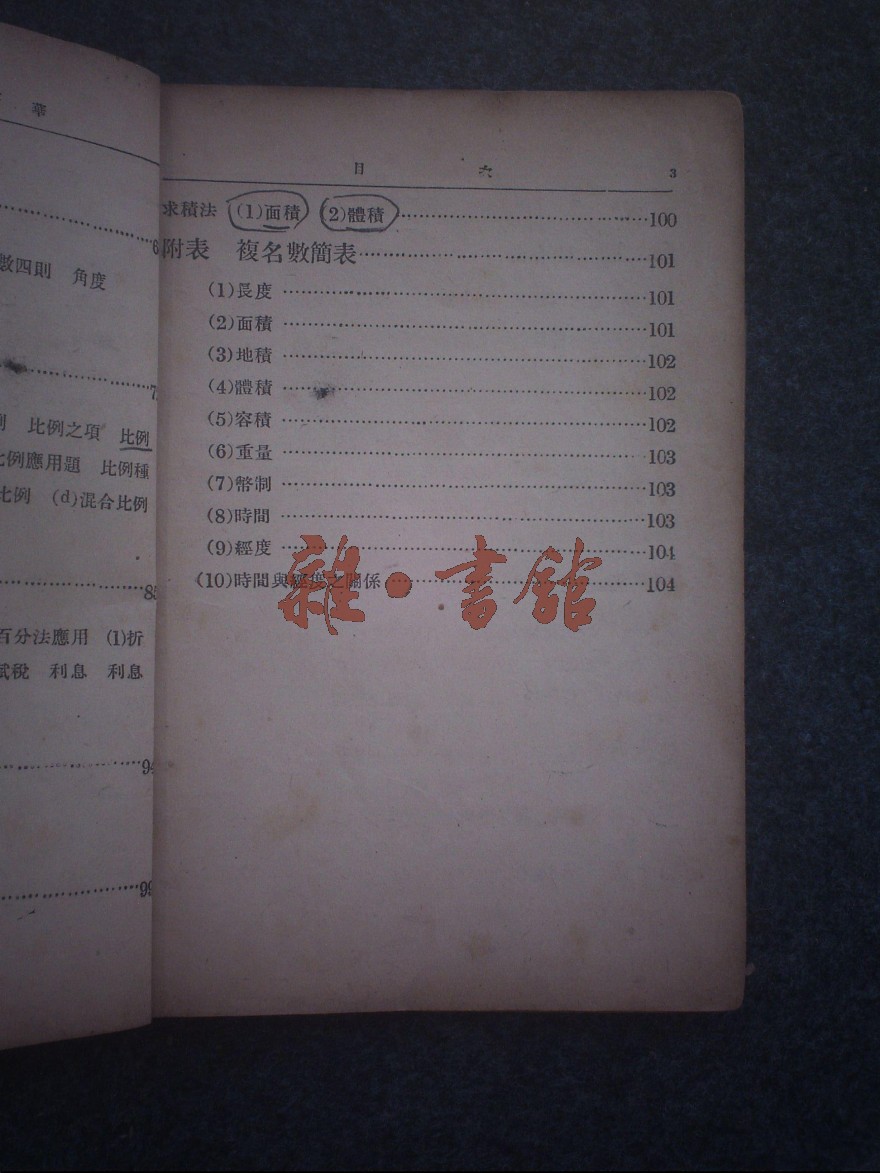 華
6
數四則 角度
比例之項 比例
比例應用題 比例種
比例 (d)混合比例
85
百分法應用 (1)折
賦稅 利息 利息
94
99
目 次 3
求積法 (1)面積 (2)體積 100
附表 複名數簡表 101
(1)長度 101
(2)面積 101
(3)地積 102
(4)體積 102
(5)容積 102
(6)重量 103
(7)幣制 103
(8)時間 103
(9)經度 104
(10)時間與經度之關係 104
雜·書館